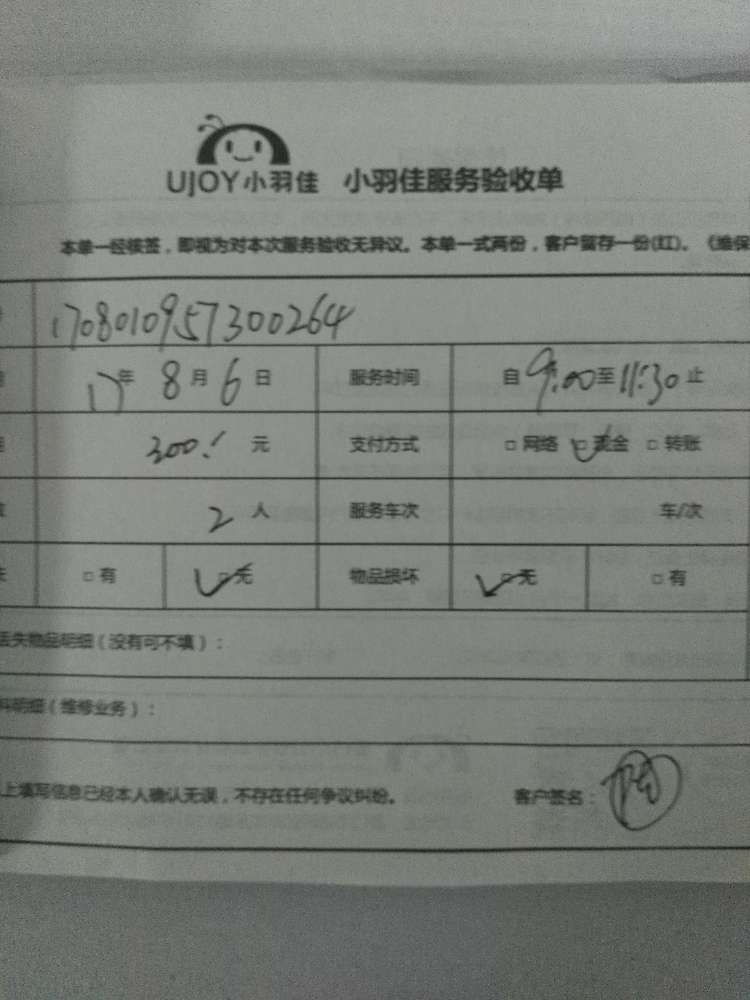 UJOY小羽佳 小羽佳服务验收单
本单一经核签，即视为对本次服务验收无异议。本单一式两份，客户留存一份(红)。《维保
1708010957300264
17年 8月 6日 服务时间 自 9:00 至 11:30 止
300.! 元 支付方式 □ 网络 □ 现金 □ 转账
2 人 服务车次 车/次
□ 有 □ 无 物品损坏 □ 无 □ 有
丢失物品明细（没有可不填）：
料明细（维修业务）：
上填写信息已经本人确认无误，不存在任何争议纠纷。 客户签名：